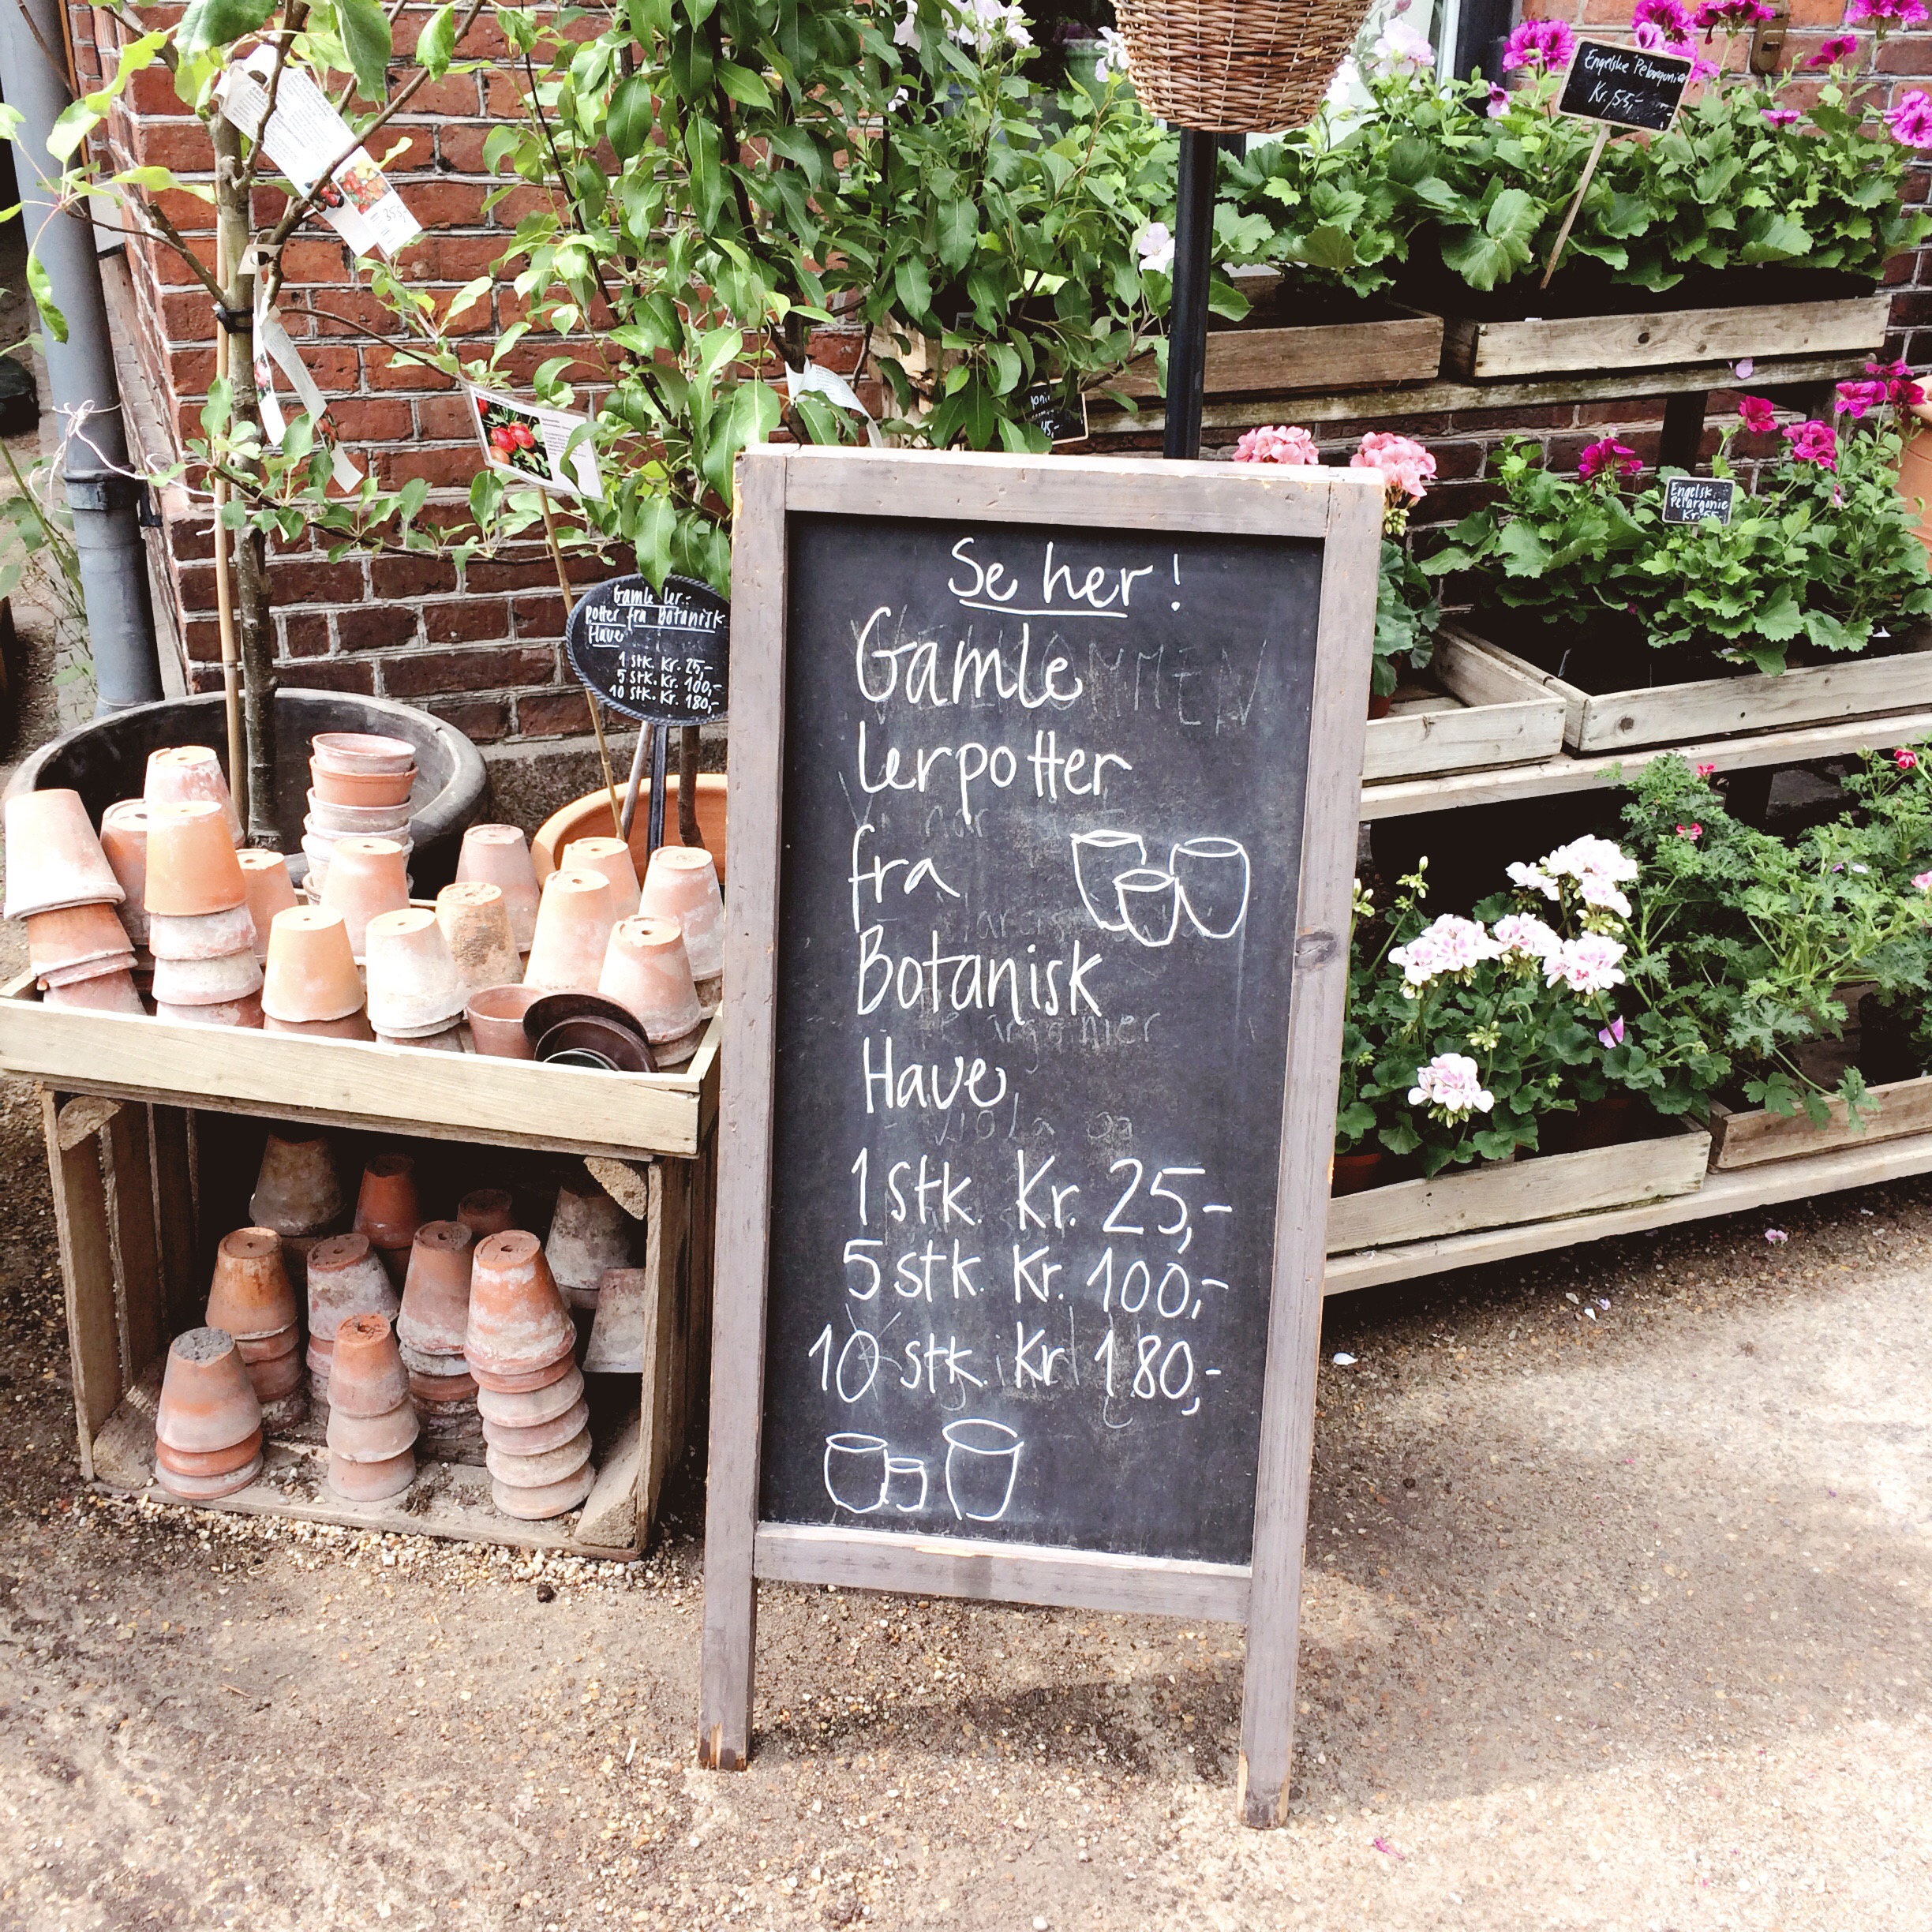 Engelske Pelargonie
Kr. 55,-
355,-
45,-
Engelsk
Pelargonie
Kr. 55
Gamle ler-
potter fra Botanisk
Have
1 stk. Kr. 25,-
5 stk. Kr. 100,-
10 stk. Kr. 180,-
Se her!
Gamle
lerpotter
fra
Botanisk
Have
1 stk. Kr. 25,-
5 stk. Kr. 100,-
10 stk. Kr 180,-
VELKOMMEN
Viola og